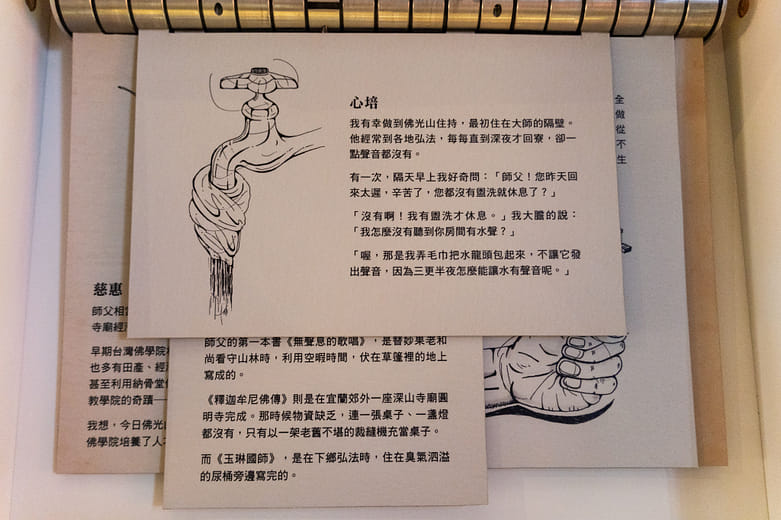 心培
我有幸做到佛光山住持，最初住在大師的隔壁。
他經常到各地弘法，每每直到深夜才回寮，卻一
點聲音都沒有。
有一次，隔天早上我好奇問：「師父！您昨天回
來太遲，辛苦了，您都沒有盥洗就休息了？」
「沒有啊！我有盥洗才休息。」我大膽的說：
「我怎麼沒有聽到你房間有水聲？」
「喔，那是我弄毛巾把水龍頭包起來，不讓它發
出聲音，因為三更半夜怎麼能讓水有聲音呢。」
全
做
從
不
生
慈惠
師父相
寺廟經
早期台灣佛學院
也多有田產、經
甚至利用納骨堂
教學院的奇蹟
我想，今日佛光
佛學院培養了人
師父的第一本書《無聲息的歌唱》，是替妙果老和
尚看守山林時，利用空暇時間，伏在草篷裡的地上
寫成的。
《釋迦牟尼佛傳》則是在宜蘭郊外一座深山寺廟圓
明寺完成。那時候物資缺乏，連一張桌子、一盞燈
都沒有，只有以一架老舊不堪的裁縫機充當桌子。
而《玉琳國師》，是在下鄉弘法時，住在臭氣泗溢
的尿桶旁邊寫完的。